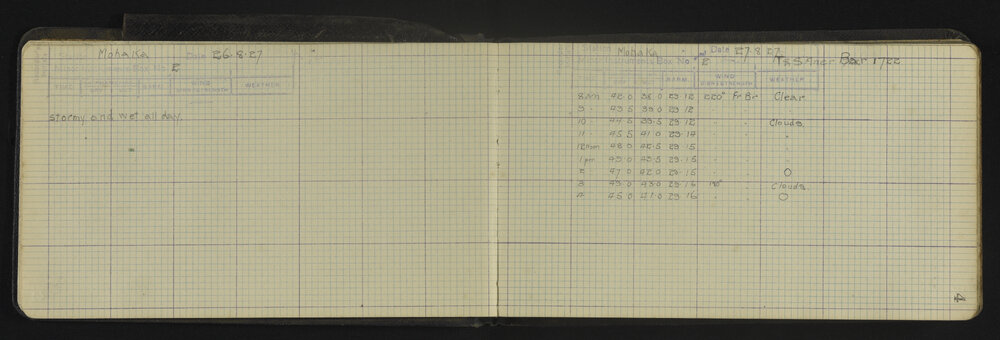 Mohaka Date 26.8.27
Box No 2
TIME BARM WIND DIR & STRENGTH WEATHER
stormy and wet all day.
Station Mohaka Date 27.8.27
Instruments Box No 2 Bar 1722
BARM WIND DIR & STRENGTH WEATHER
8am 42.0 38.0 29.12 220° Fr Br Clear
9 43.5 39.0 29.12 " "
10 44.5 39.5 29.12 " " Clouds.
11 45.5 41.0 29.14 " " "
12 noon 48.0 42.5 29.15 " " "
1 pm 49.0 43.5 29.15 " " "
2 47.0 42.0 29.15 " " O
3 49.0 43.0 29.16 190° " Clouds.
4 45.0 41.0 29.16 " " O
4